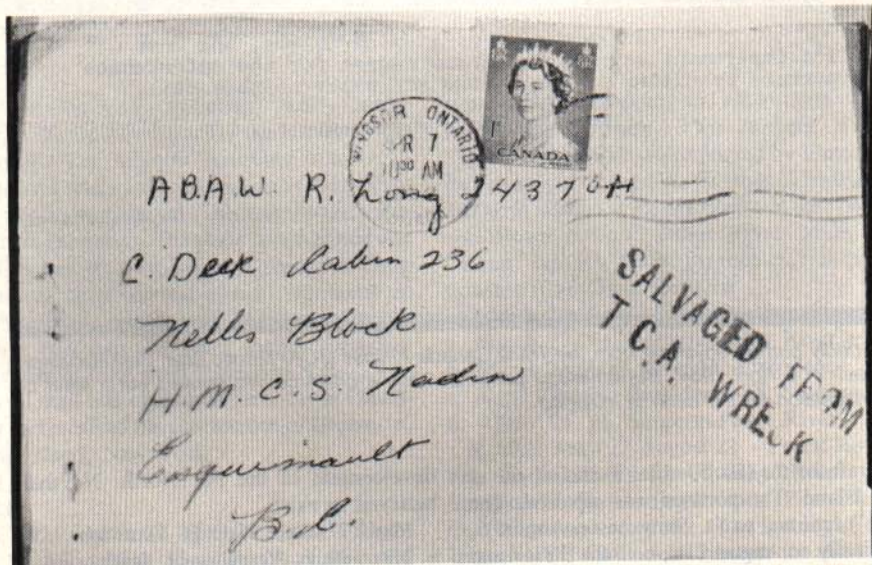 WINDSOR ONTARIO
7
10³⁰ AM
1¢
CANADA
A.B.A.W. R. Long 24376H
C. Deck Cabin 236
Nelles Block
H.M.C.S. Naden
Esquimault
B.C.
SALVAGED FROM
T.C.A. WRECK